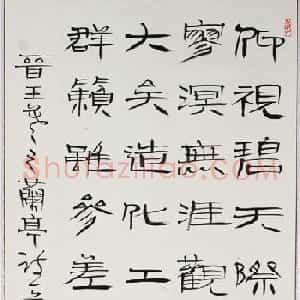 仰視碧天際
寥溟無涯觀
大矣造化工
群籟雖參差
晉王羲之蘭亭詩
Shufaziliao.com